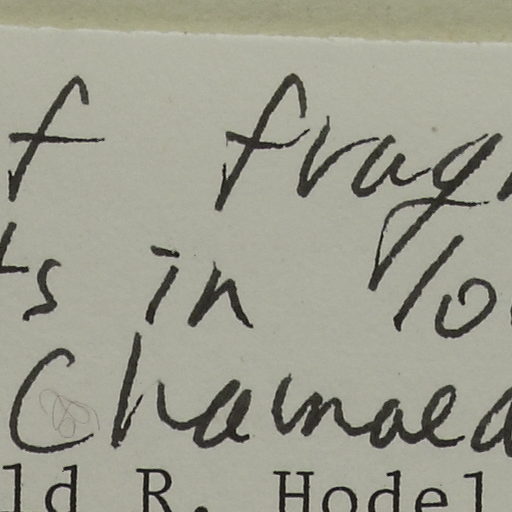 f fragr
ts in lo
Chamaed
ld R. Hodel